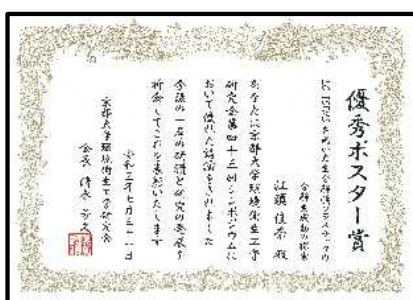 優秀ポスター賞
を用いた生分解性プラスチックの
分解生成物の探索
江頭佳奈 殿
あなたは京都大学環境衛生工学
研究会第四十三回シンポジウムに
おいて優れた講演をされました
今後の一層の研鑽と研究の発展を
祈念してこれを表彰いたします
令和三年七月三十一日
京都大学環境衛生工学研究会
会長 清水芳久